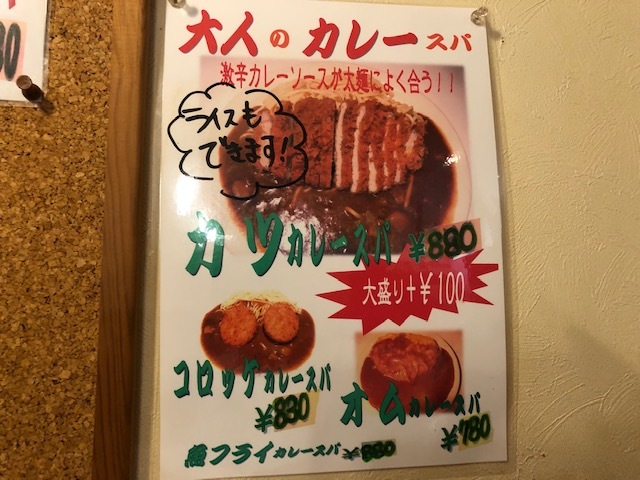 30
大人のカレースパ
激辛カレーソースが太麺によく合う!!
ライスも
できます!
カツカレースパ ¥880
大盛り+¥100
コロッケカレースパ
¥830
オムカレースパ
¥780
フライカレースパ